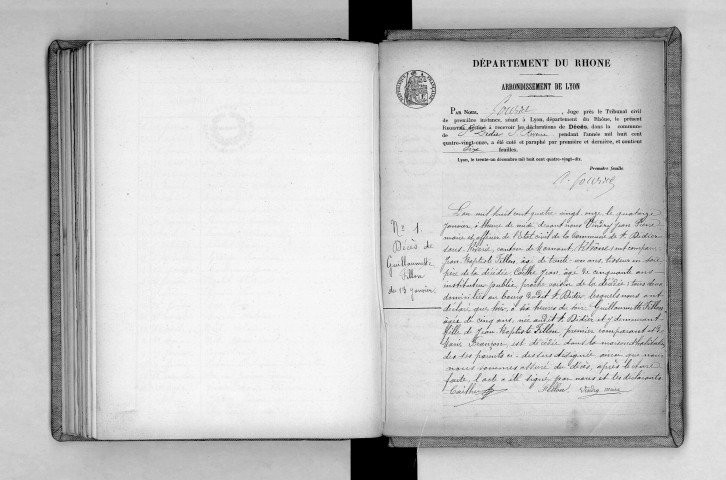 DÉPARTEMENT DU RHONE
ARRONDISSEMENT DE LYON
PAR NOUS, , Juge près le Tribunal civil
de première instance, séant à Lyon, département du Rhône, le présent
REGISTRE destiné à recevoir les déclarations de Décès, dans la commune
de St Didier S. Riverie pendant l'année mil huit cent
quatre-vingt-onze, a été coté et paraphé par première et dernière, et contient
six feuilles.
Lyon, le trente-un décembre mil huit cent quatre-vingt-dix.
Première feuille.
No 1.
Décès de
Guillaumette
Fillon
du 13 janvier
L'an mil huit cent quatre vingt onze le quatorze
janvier, à l'heure de midi devant nous Jean Pierre
maire et officier de l'Etat civil de la Commune de St Didier
sous Riverie, canton de Mornant, (Rhône) ont comparu
Jean Baptiste Fillon, âgé de trente un ans, tisseur en soie
père de la décédée Jean, âgé de cinquante ans
instituteur public, proche voisin de la décédée: tous deux
domiciliés au bourg dudit St Didier, lesquels nous ont
déclaré que hier, à six heures du soir Guillaumette Fillon
âgée de cinq ans, née audit St Didier et y demeurant
fille de Jean Baptiste Fillon, premier comparant et de
Marie Françon, est décédée dans la maison d'habitation
de ses parents ci-dessus désignés ainsi que nous
nous sommes assuré du décès, après lecture
faite, l'acte a été signé par nous et les déclarants
Fillon maire